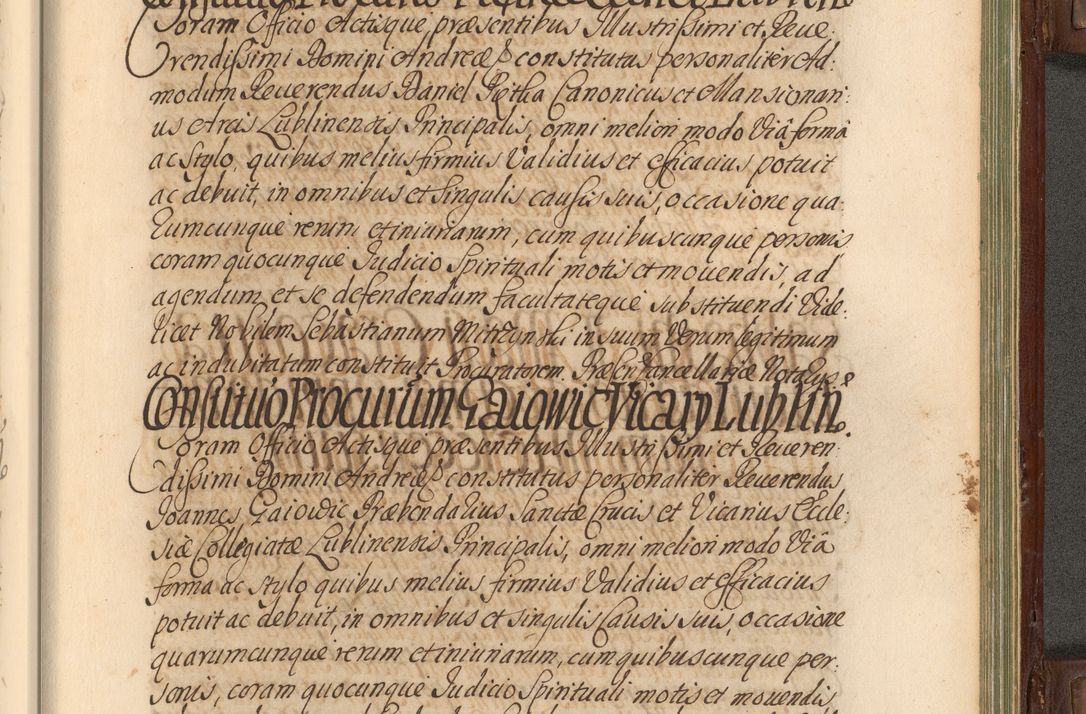 Coram Officio Actisque præsentibus Illustrissimi et Reue:
rendissimi Domini Andreæ &c constitutus personaliter Ad:
modum Reuerendus Daniel Pętka Canonicus et Mansionari:
us Arcis Lublinensis Principalis, omni meliori modo Viâ formâ
ac Stylo, quibus melius firmius Validius et efficacius potuit
ac debuit, in omnibus et singulis causis suis, occasione qua:
rumcunque rerum et iniuriarum, cum quibuscunque personis
coram quocunque Iudicio Spirituali motis et mouendis, ad
agendum et se defendendum facultateque substituendi Vide:
licet Nobilem Sebastianum Mitrzynski in suum Verum legitimum
ac indubitatum constituit Procuratorem. Præsen: Cancellariæ Notarys.
Constitutio Procurum Gaiowic Vicary Lublin.
Coram Officio Actisque præsentibus Illustrissimi et Reueren:
dissimi Domini Andreæ &c constitutus personaliter Reuerendus
Joannes Gaiowic Præbendarius Sanctæ Crucis et Vicarius Eccle:
siæ Collegiatæ Lublinensis Principalis, omni meliori modo Viâ
forma ac stylo quibus melius firmius Validius et efficacius
potuit ac debuit, in omnibus et singulis Causis suis, occasione
quarumcunque rerum et iniuriarum, cum quibuscunque per:
sonis, coram quocunque Iudicio Spirituali motis et mouendis,